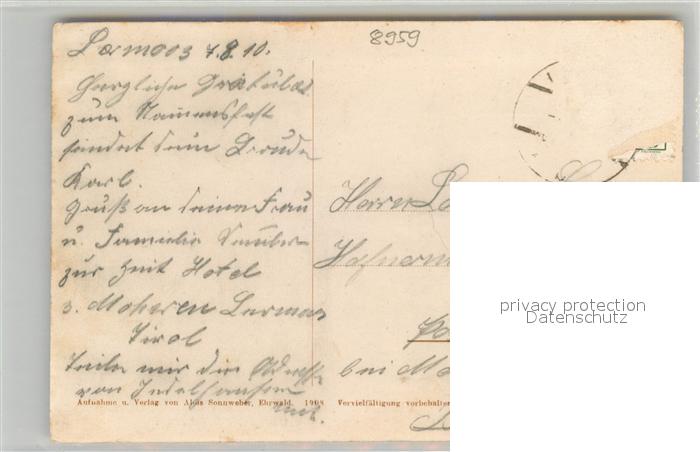 8959
Lermoos 7.8.10.
Herzliche Gratulat
zum Namensfeste
sendet dein Bruder
Karl.
Gruß an deine Frau
u. Familie
zur Zeit Hotel
3. Mohren Lermoos
Tirol
Teile mir die Adresse
von
mit.
Herrn
Hafnerm
bei
Aufnahme u. Verlag von Alois Sonnweber, Ehrwald. 1908 Vervielfältigung vorbehalten
privacy protection
Datenschutz